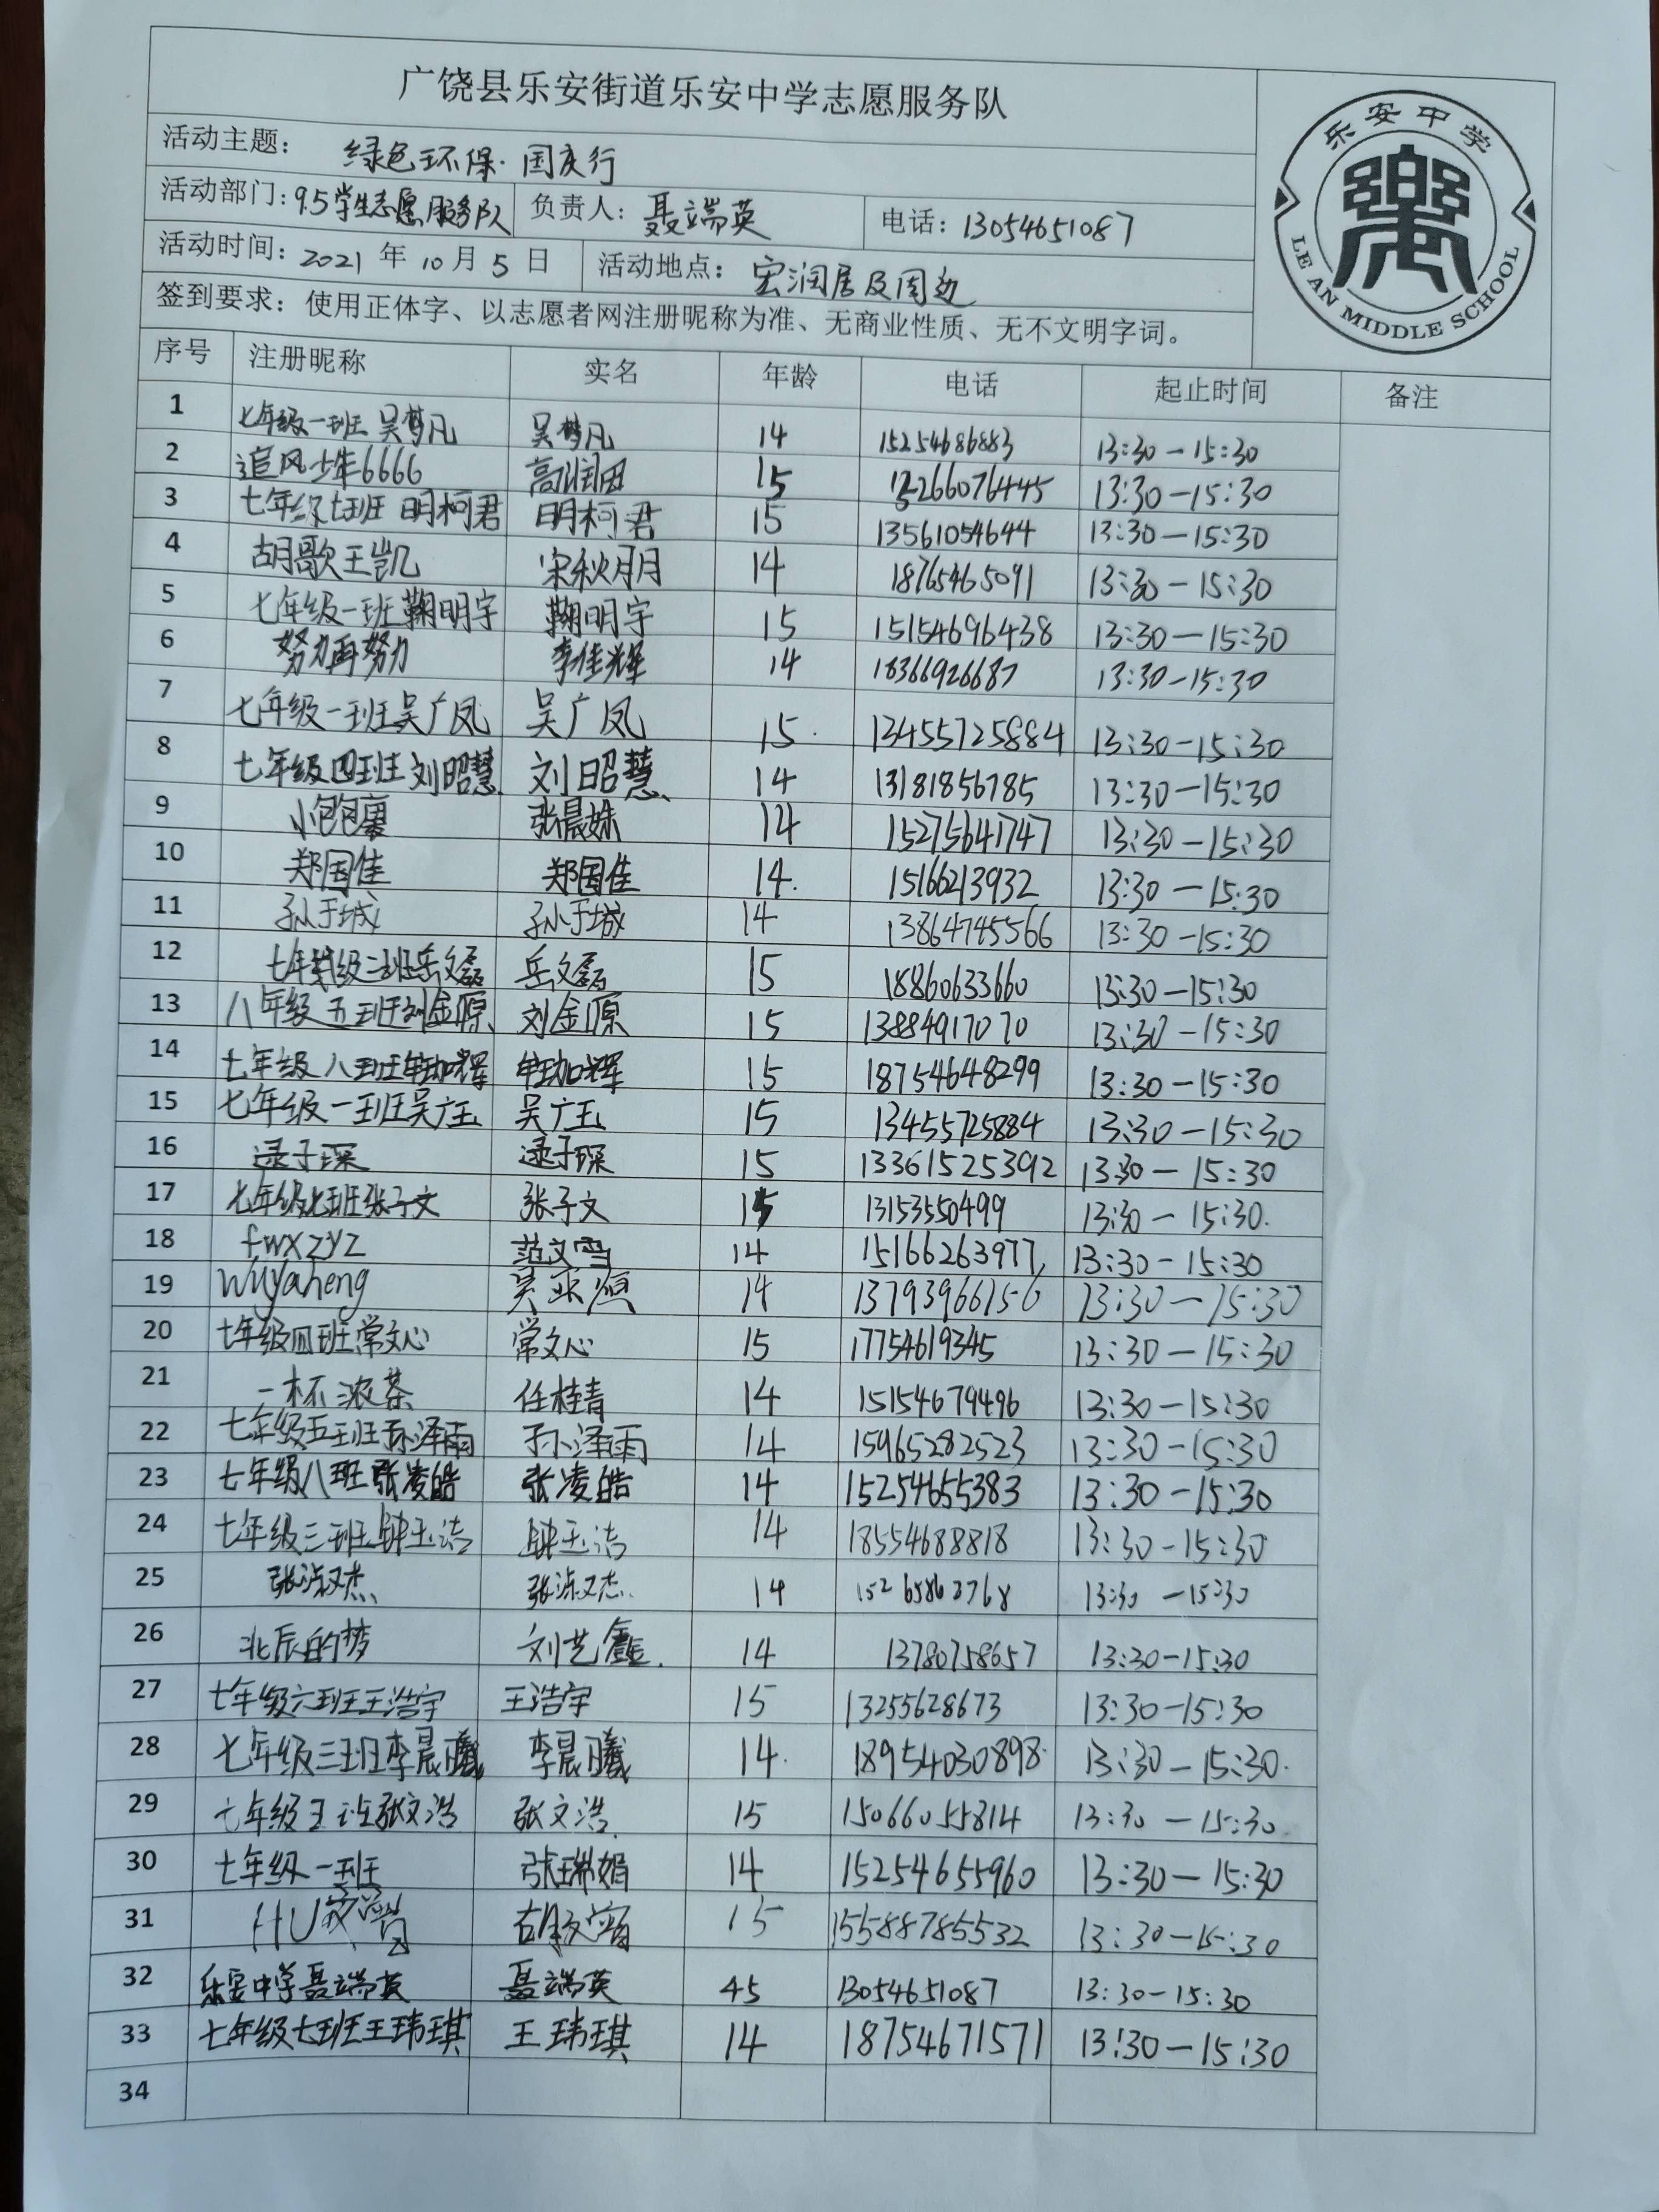 广饶县乐安街道乐安中学志愿服务队
乐安中学
LE AN MIDDLE SCHOOL
活动主题： 绿色环保·国庆行
活动部门：9.5学生志愿服务队 负责人：聂端英 电话：13054651087
活动时间：2021年10月5日 活动地点：宏润居及周边
签到要求：使用正体字、以志愿者网注册昵称为准、无商业性质、无不文明字词。
序号 注册昵称 实名 年龄 电话 起止时间 备注
1 七年级一班吴梦凡 吴梦凡 14 15254686883 13:30-15:30
2 追风少年6666 高润田 15 13266076445 13:30-15:30
3 七年级七班明柯君 明柯君 15 13561054644 13:30-15:30
4 胡歌王凯 宋秋月 14 18765465091 13:30-15:30
5 七年级一班鞠明宇 鞠明宇 15 15154696438 13:30-15:30
6 努力再努力 李佳辉 14 18366926687 13:30-15:30
7 七年级一班吴广凤 吴广凤 15 13455725884 13:30-15:30
8 七年级四班刘昭慧 刘昭慧 14 13181856785 13:30-15:30
9 小包包裹 张晨姝 14 15275641747 13:30-15:30
10 郑国佳 郑国佳 14 15166213932 13:30-15:30
11 孙于城 孙于城 14 13864745566 13:30-15:30
12 七年级三班岳文磊 岳文磊 15 18860633660 13:30-15:30
13 八年级五班刘金源 刘金源 15 13884917070 13:30-15:30
14 七年级八班 加辉 加辉 15 18754648299 13:30-15:30
15 七年级一班吴广玉 吴广玉 15 13455725884 13:30-15:30
16 逯子琛 逯子琛 15 13361525392 13:30-15:30
17 七年级七班张子文 张子文 15 13153550499 13:30-15:30
18 fwxzyz 范文雪 14 15166263977 13:30-15:30
19 wuyaheng 吴亚恒 14 13793966156 13:30-15:30
20 七年级四班常文心 常文心 15 17754619345 13:30-15:30
21 一杯浓茶 任桂青 14 15154679496 13:30-15:30
22 七年级五班孙泽雨 孙泽雨 14 15965282523 13:30-15:30
23 七年级八班张凌皓 张凌皓 14 15254655383 13:30-15:30
24 七年级三班钟玉洁 钟玉洁 14 18554688818 13:30-15:30
25 张淑杰 张淑杰 14 13:30-15:30
26 北辰的梦 刘艺鑫 14 13780758657 13:30-15:30
27 七年级六班王浩宇 王浩宇 15 13255628673 13:30-15:30
28 七年级三班李晨曦 李晨曦 14 18954030898 13:30-15:30
29 七年级五班张文浩 张文浩 15 15066055814 13:30-15:30
30 七年级一班 张瑞娟 14 15254655960 13:30-15:30
31 HU 胡 15 15588785532 13:30-15:30
32 乐安中学聂端英 聂端英 45 13054651087 13:30-15:30
33 七年级七班王玮琪 王玮琪 14 18754671571 13:30-15:30
34